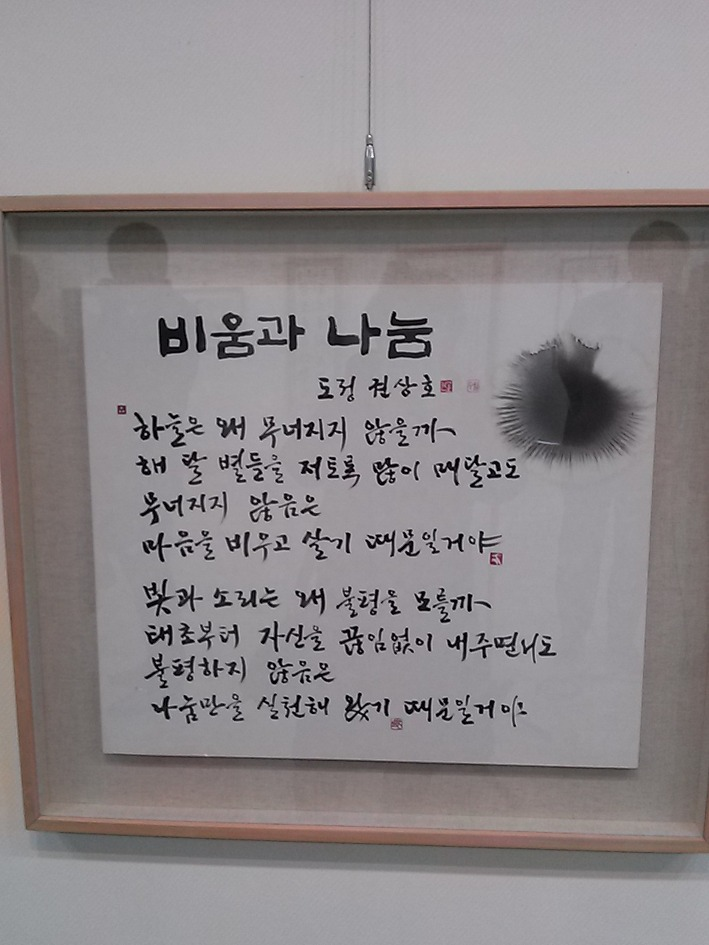 비움과 나눔
도정 권상호
하늘은 왜 무너지지 않을까
해 달 별들을 저토록 많이 매달고도
무너지지 않음은
마음을 비우고 살기 때문일거야
빛과 소리는 왜 불평을 모를까
태초부터 자신을 끊임없이 내주면서도
불평하지 않음은
나눔만을 실천해 왔기 때문일거야